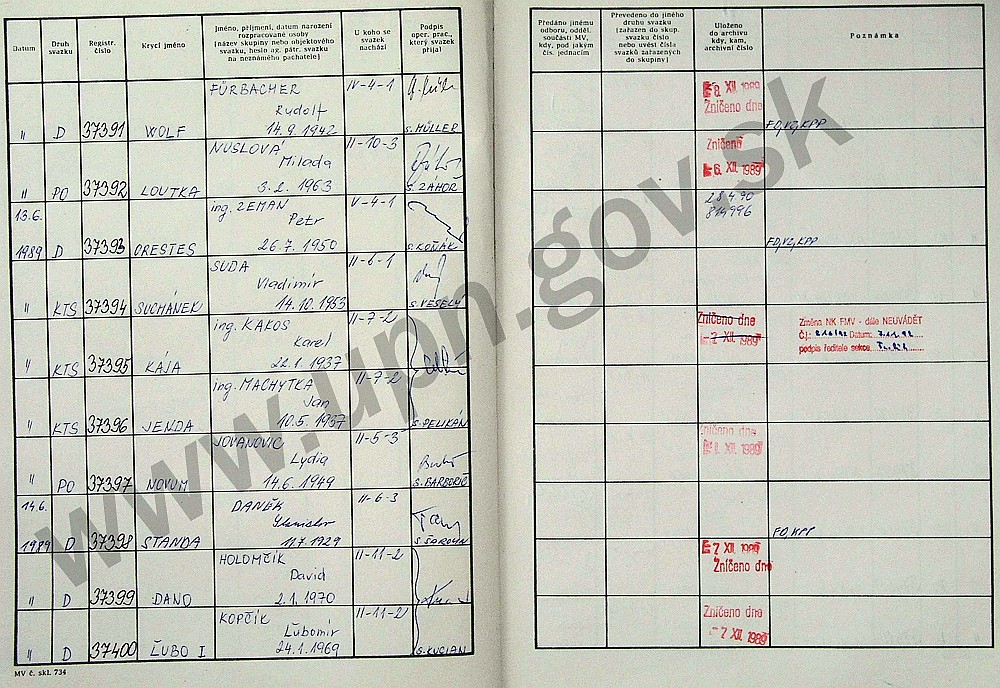 Datum
Druh
svazku
Registr.
číslo
Krycí jméno
Jméno, příjmení, datum narození
rozpracované osoby
(název skupiny nebo objektového
svazku, heslo ag. pátr. svazku
na neznámého pachatele)
U koho se
svazek
nachází
Podpis
oper. prac.,
který svazek
přijal
Předáno jinému
odboru, odděl.
součásti MV,
kdy, pod jakým
čís. jednacím
Převedeno do jiného
druhu svazku
(zařazen do skup.
svazku číslo
nebo uvést čísla
svazků zařazených
do skupiny)
Uloženo
do archivu
kdy, kam,
archivní číslo
Poznámka
FÜRBACHER IV-4-1
Rudolf
" D 37391 WOLF 14.9.1942 S.MÜLLER
8. XII. 1989
Zničeno dne
FO,VZ,KPP
NUSLOVÁ II-10-3
Milada
" PO 37392 LOUTKA 3.2.1963 S.ZÁHOR
Zničeno
6. XII. 1989
13.6. ing. ZEMAN V-4-1
Petr
1989 D 37393 ORESTES 26.7.1950 S.KOŇÁK
28 4 90
814996
FO,VZ,KPP
SUDA II-6-1
Vladimír
" KTS 37394 SUCHÁNEK 14.10.1953 S.VESELÝ
ing. KAKOS II-7-2
Karel
" KTS 37395 KÁJA 22.1.1937
Zničeno dne
-7 XII. 1989
Změna NK FMV - dále NEUVÁDĚT
Č.j.: Datum:
podpis ředitele sekce
ing. MACHYTKA II-7-2
Jan
" KTS 37396 JENDA 10.5.1937 S.PELIKÁN
JOVANOVIC II-5-3
Lydia
" PO 37397 NOVUM 14.6.1949 S.BARBORIČ
Zničeno dne
XII. 1989
14.6. DANĚK II-6-3
Stanislav
1989 D 37398 STANDA 11.7.1929
FO,KPP
HOLOMČÍK II-11-2
David
" D 37399 DANO 2.1.1970
7 XII. 1989
Zničeno dne
KOPČÍK II-11-2
Ľubomír
" D 37400 ĽUBO I 24.1.1969 S.KUCIAN
Zničeno dne
-7 XII. 1989
MV č. skl. 734
www.upn.gov.sk